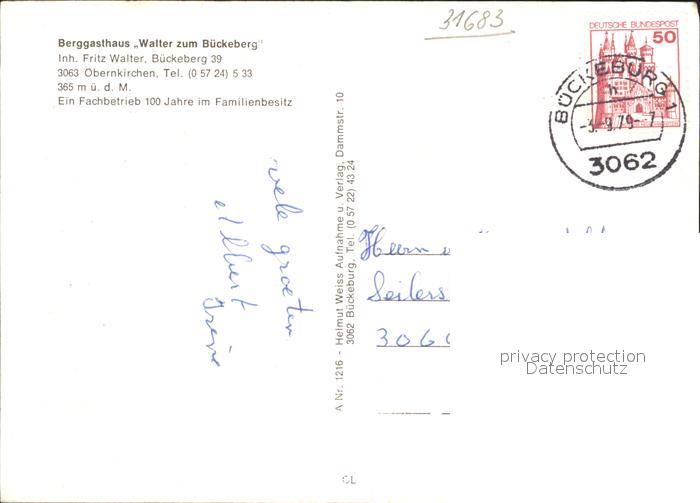 31683
Berggasthaus „Walter zum Bückeberg"
Inh. Fritz Walter, Bückeberg 39
3063 Obernkirchen, Tel. (0 57 24) 5 33
365 m ü. d. M.
Ein Fachbetrieb 100 Jahre im Familienbesitz
DEUTSCHE BUNDESPOST
50
BÜCKEBURG 1
h
-3.-9.79- 7
3062
vele groeten
Albert
Irene
A Nr. 1216 - Helmut Weiss Aufnahme u. Verlag, Dammstr. 10
3062 Bückeburg, Tel. (0 57 22) 43 24
Herrn
Seilers
306
privacy protection
Datenschutz
CL